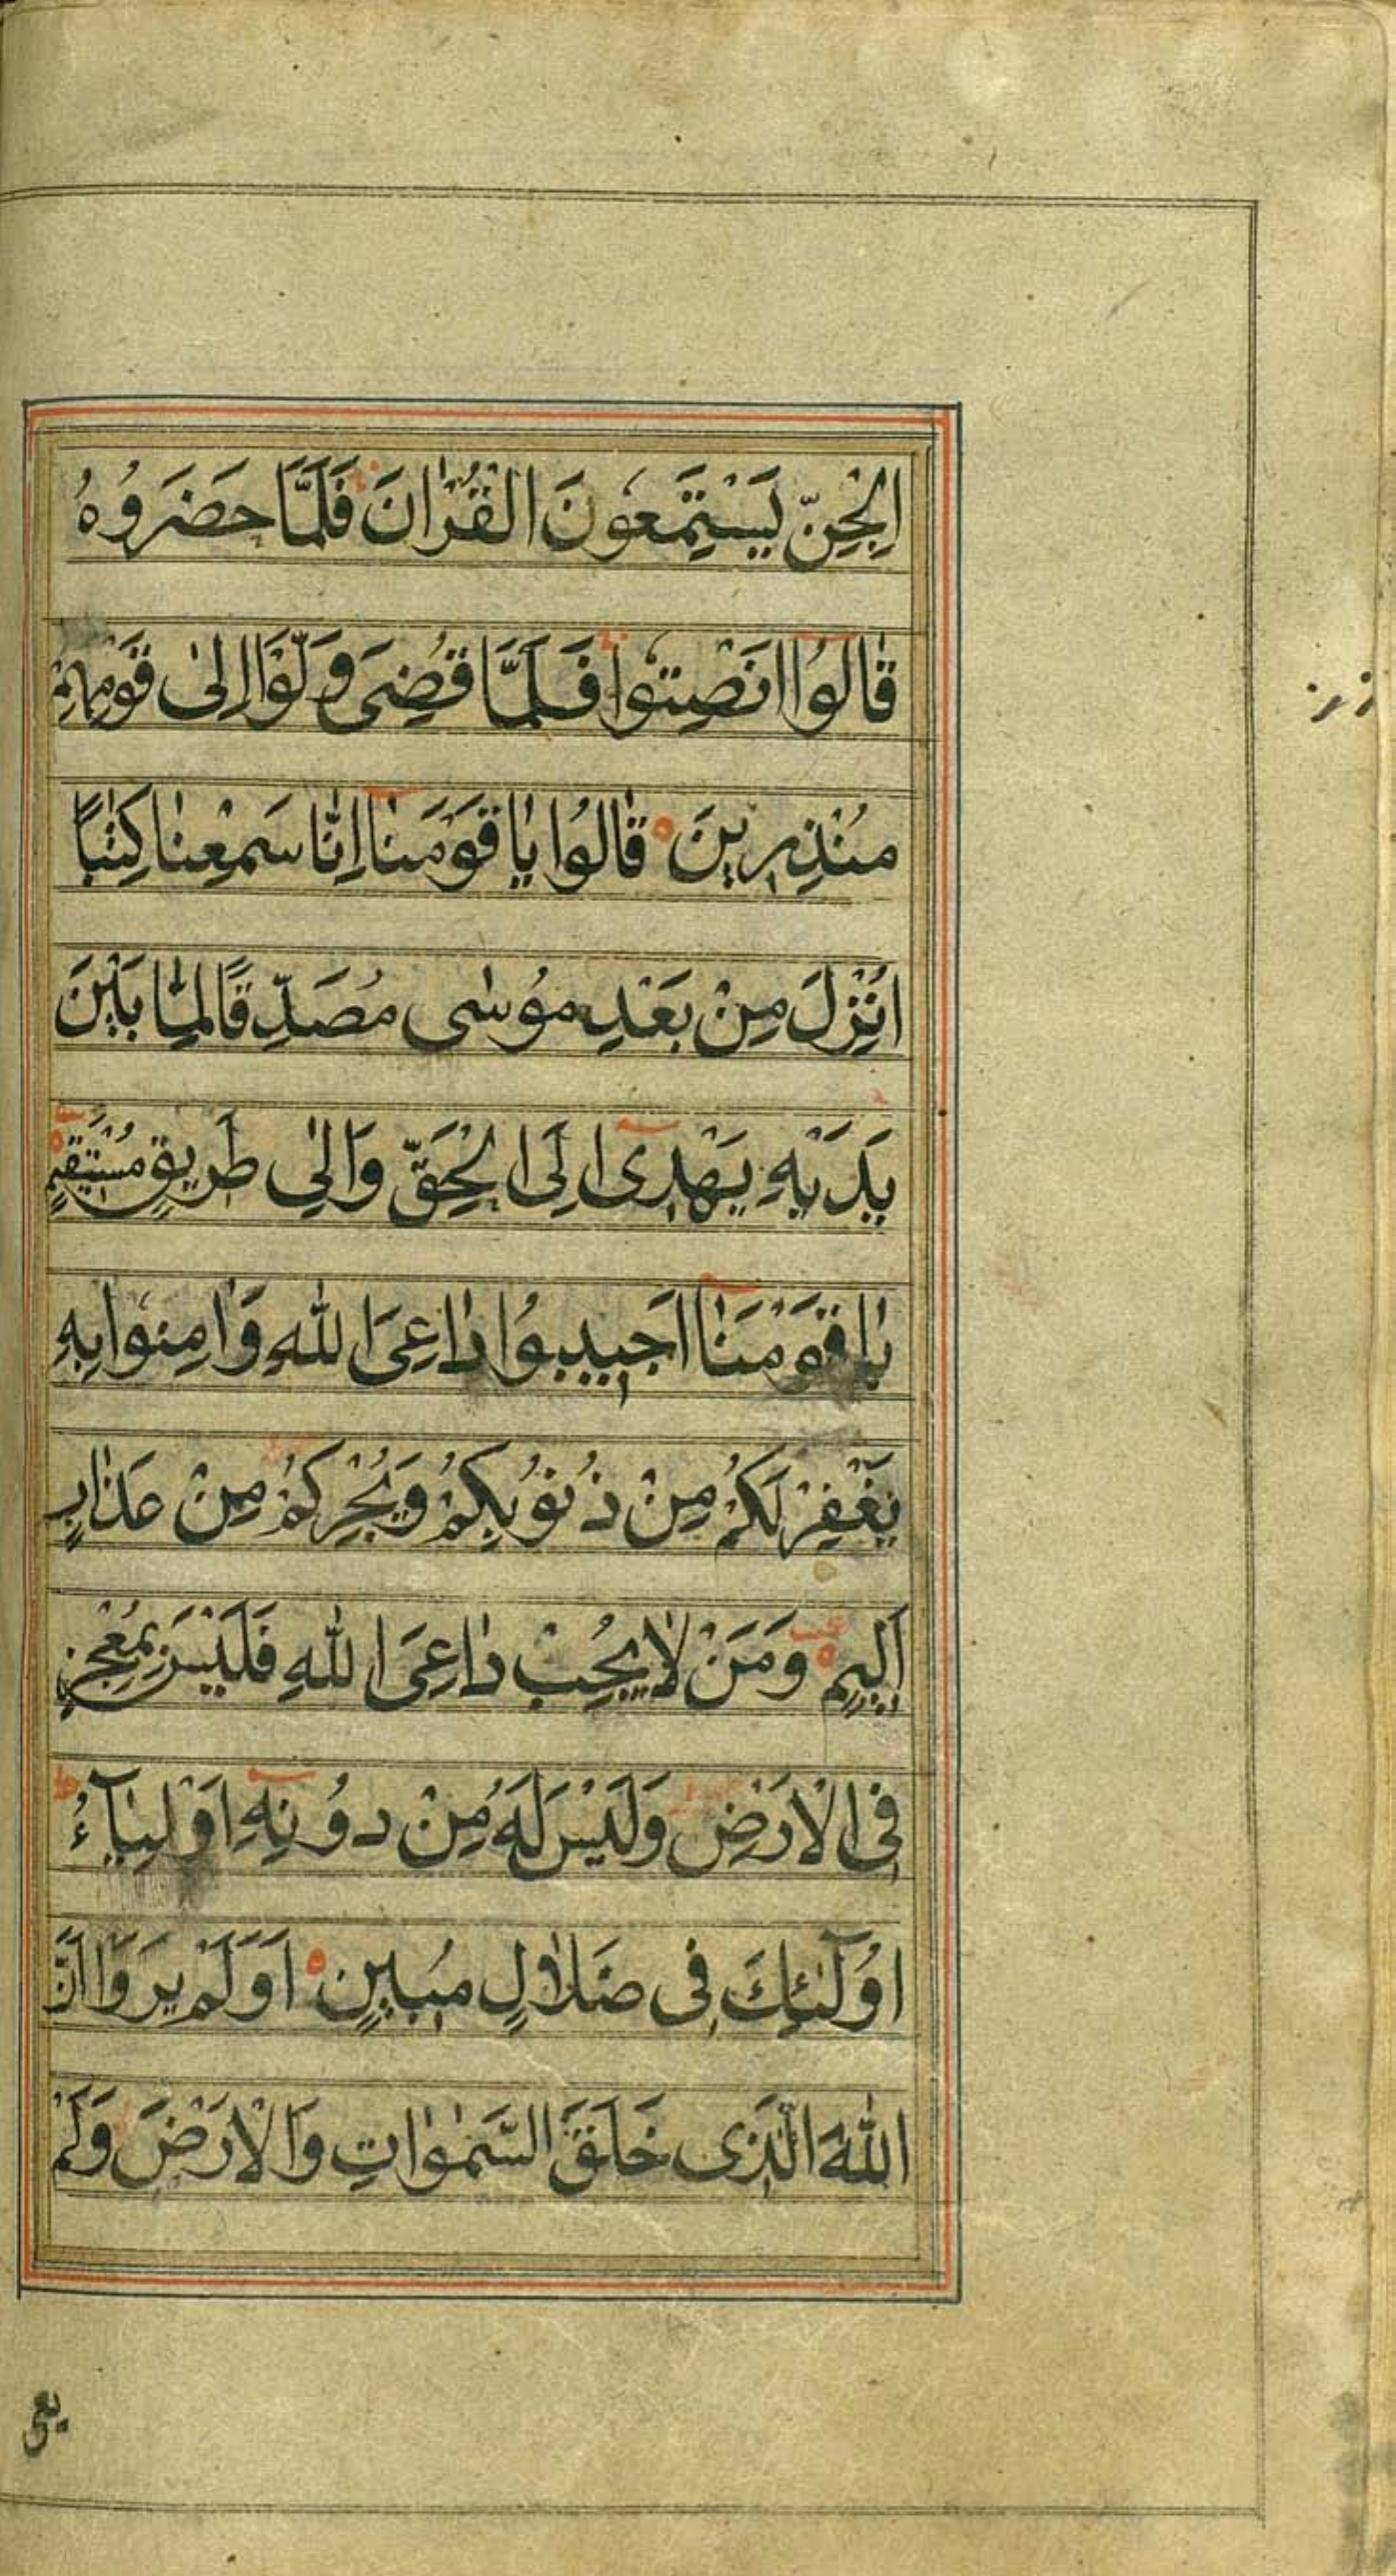 الْجِنِّ يَسْتَمِعُونَ الْقُرْاٰنَ فَلَمَّا حَضَرُوهُ
قٰالُوا انَصِتُوا فَلَمَّا قُضِىَ وَلَّوْا اِلىٰ قَوْمِهِمْ
مُنْذِرِينَ قٰالُوا يٰا قَوْمَنٰا اِنّٰا سَمِعْنٰا كِتٰبًا
اُنْزِلَ مِنْ بَعْدِ مُوسٰى مُصَدِّقًا لِمٰا بَيْنَ
يَدَيْهِ يَهْدِى اِلَى الْحَقِّ وَاِلىٰ طَرِيقٍ مُسْتَقِيمٍ
يٰا قَوْمَنٰا اَجِيبُوا دٰاعِىَ اللّٰهِ وَاٰمِنُوا بِهِ
يَغْفِرْ لَكُمْ مِنْ ذُنُوبِكُمْ وَيُجِرْكُمْ مِنْ عَذٰابٍ
اَلِيمٍ وَمَنْ لٰا يُجِبْ دٰاعِىَ اللّٰهِ فَلَيْسَ بِمُعْجِزٍ
فِى الْاَرْضِ وَلَيْسَ لَهُ مِنْ دُونِهِ اَوْلِيٰآءُ
اُولٰٓئِكَ فِى ضَلٰالٍ مُبِينٍ اَوَلَمْ يَرَوْا اَنَّ
اللّٰهَ الَّذِى خَلَقَ السَّمٰوٰاتِ وَالْاَرْضَ وَلَمْ
يعى